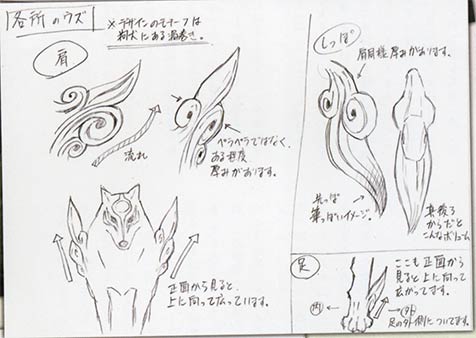 各所のウズ
※デザインのモチーフは
狛犬にある渦巻き。
肩
流れ
ペラペラではなく、
ある程度
厚みがあります。
正面から見ると、
上に向って広っています。
しっぽ
肩同様厚みがあります。
先っぽ
筆っぽいイメージ。
真後ろ
からだと
こんなボリューム
足
ここも正面から
見ると上に向って
広がってます。
内
外
足の外側についてます。